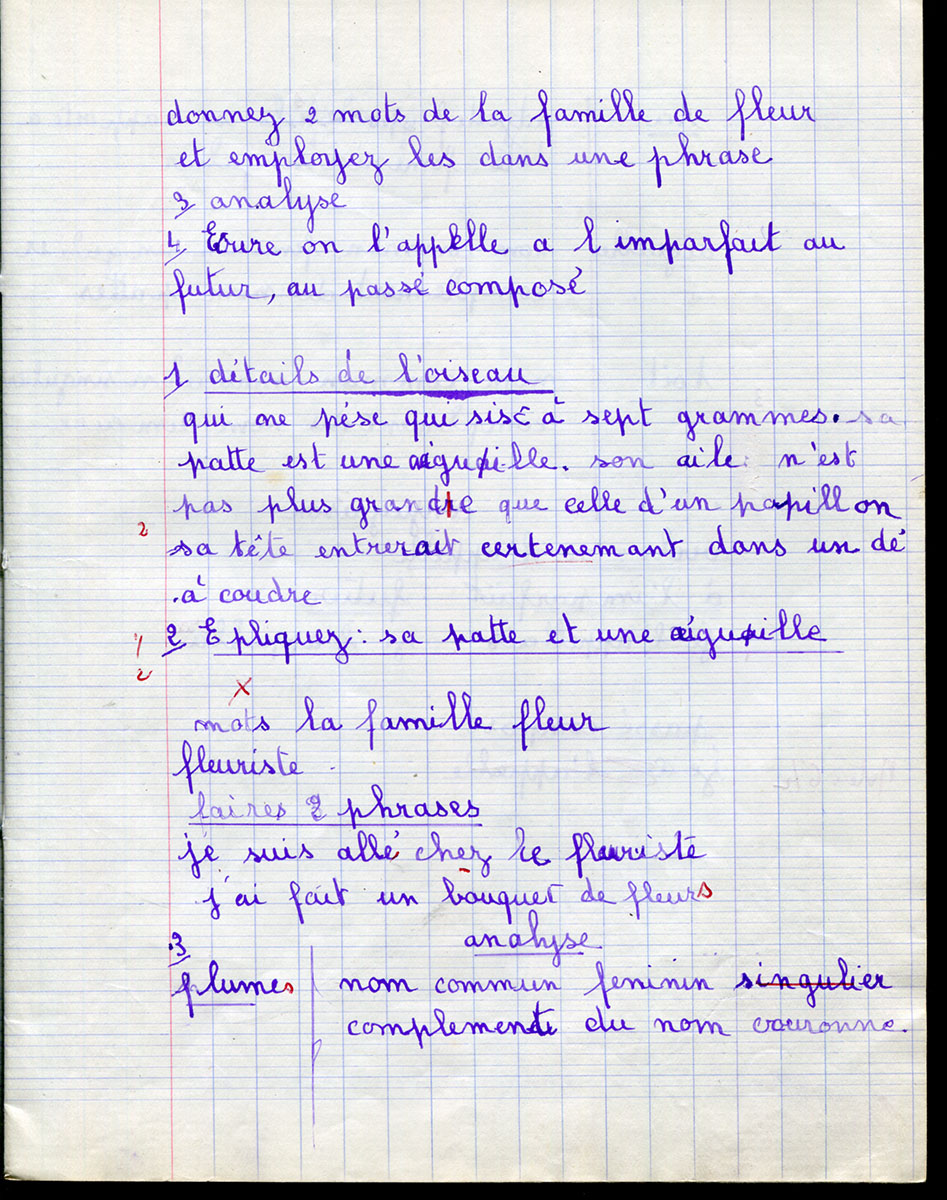 donnez 2 mots de la famille de fleur
et employez les dans une phrase
3 analyse
4 Ecrire on l'appelle a l imparfait au
futur, au passé composé
1 détails de l'oiseau
qui ne pése qui sisc à sept grammes. sa
patte est une aiguille. son aile n'est
pas plus grande que celle d'un papillon
2
sa tête entrerait certenemant dans un dé
à coudre
1
2 Epliquez : sa patte et une aiguille
2
x
mots la famille fleur
fleuriste
faires 2 phrases
je suis allé chez le fleuriste
j'ai fait un bouquet de fleurs
3 analyse
plumes nom commun feminin singulier
complement du nom couronne.